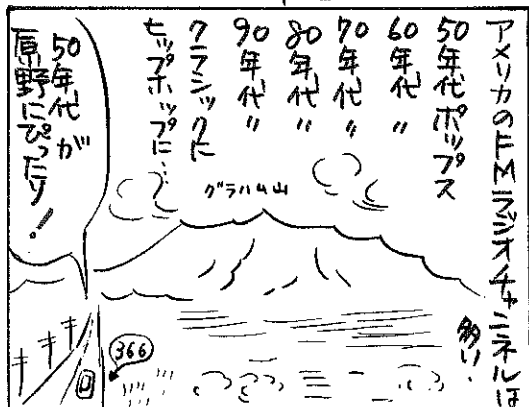 アメリカのFMラジオチャンネルは
多い.
50年代ポップス
60年代 〃
70年代 〃
80年代 〃
90年代 〃
クラシックに
ヒップホップに…
グラハム山
50年代が
原野にぴったり!
366